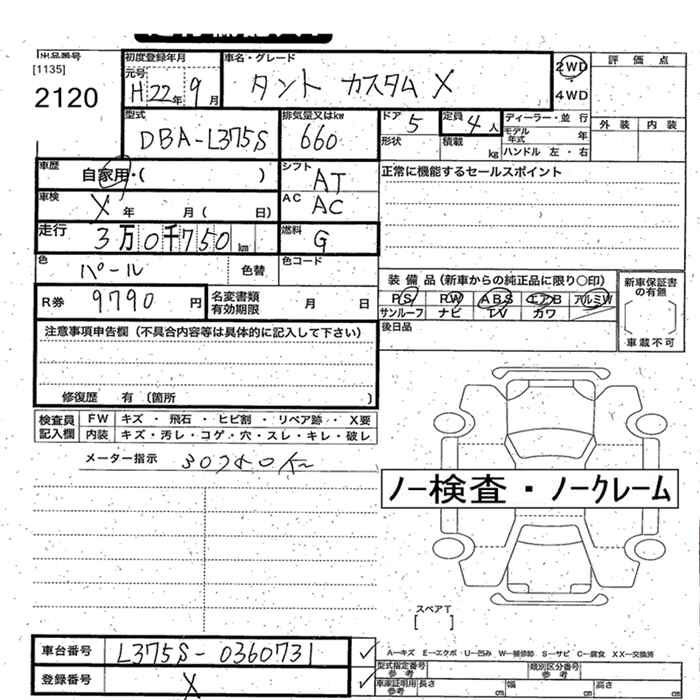 出品番号
[1135]
2120
初度登録年月
元号
H 22年 9月
車名・グレード
タント カスタム X
2WD
4WD
評 価 点
外 装 内 装
型式
DBA-L375S
排気量又はkw
660
ドア 5
形状
定員 4人
積載 kg
ディーラー・並 行
モデル年式 年
ハンドル 左・右
車歴
自家用・( )
シフト
AT
正常に機能するセールスポイント
車検
X 年 月( 日)
AC
AC
走行
3万0千750 km
燃料
G
色
パール
色替
色コード
R券 9790 円
名変書類
有効期限
月 日
装 備 品(新車からの純正品に限り○印)
PS PW ABS エアB アルミW
サンルーフ ナビ TV カワ
後日品
新車保証書
の有無
車載不可
注意事項申告欄(不具合内容等は具体的に記入して下さい)
修復歴 有 〔箇所 〕
検査員
記入欄
FW キズ・飛石・ヒビ割・リペア跡・X要
内装 キズ・汚レ・コゲ・穴・スレ・キレ・破レ
メーター指示
ノー検査・ノークレーム
スペアT
[ ]
車台番号 L375S-0360731
登録番号 X
A－キズ E－エクボ・U－凹み W－補修跡 S－サビ C－腐食 XX－交換済
型式指定番号
参考
類別区分番号
参考
車庫証明用
参考
長さ cm 幅 cm 高さ cm